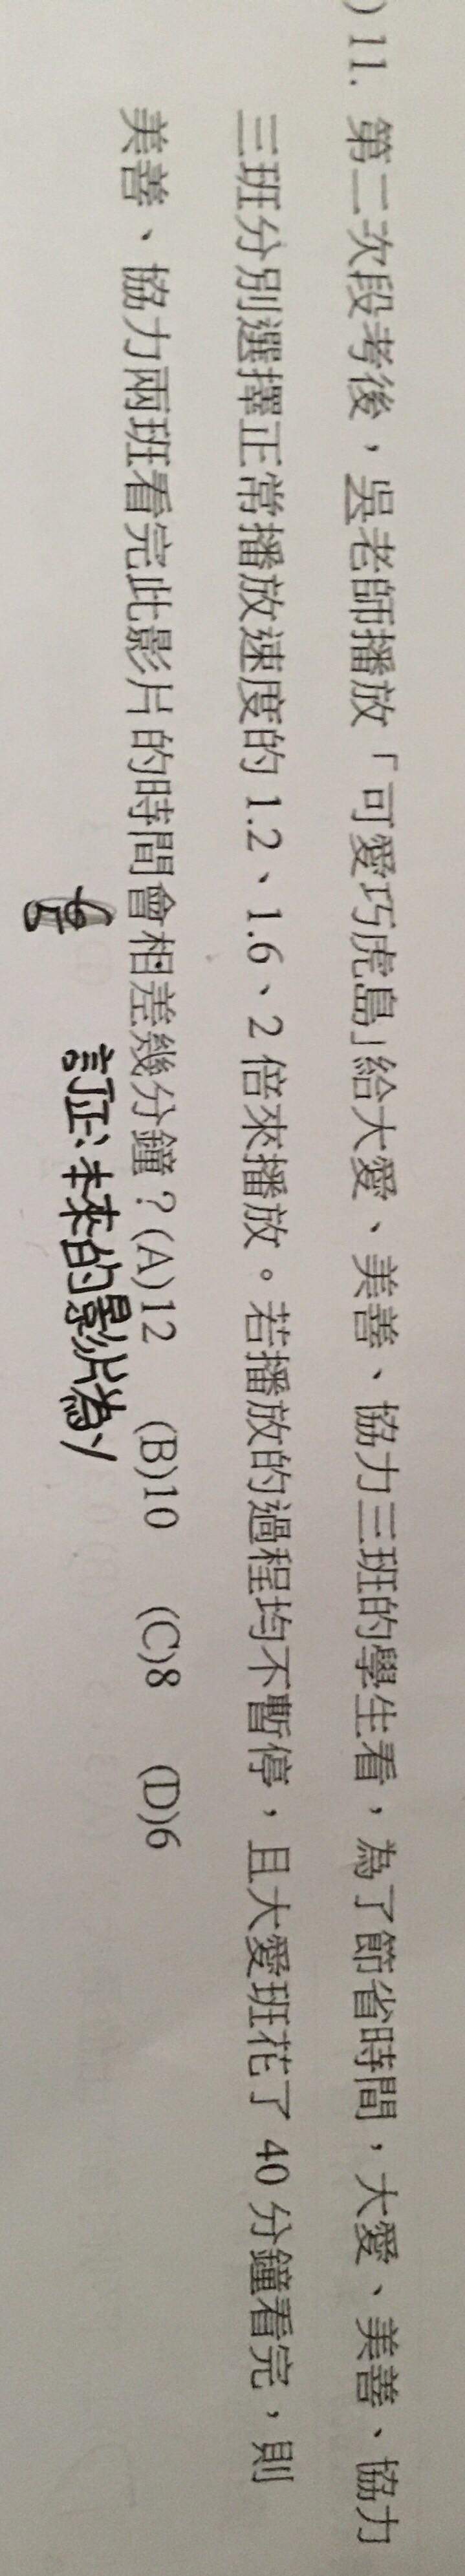 )11. 第二次段考後，吳老師播放「可愛巧虎島」給大愛、美善、協力三班的學生看，為了節省時間，大愛、美善、協力
三班分別選擇正常播放速度的 1.2、1.6、2 倍來播放。若播放的過程均不暫停，且大愛班花了 40 分鐘看完，則
美善、協力兩班看完此影片的時間會相差幾分鐘？(A)12 (B)10 (C)8 (D)6
訂正：本來的影片為y